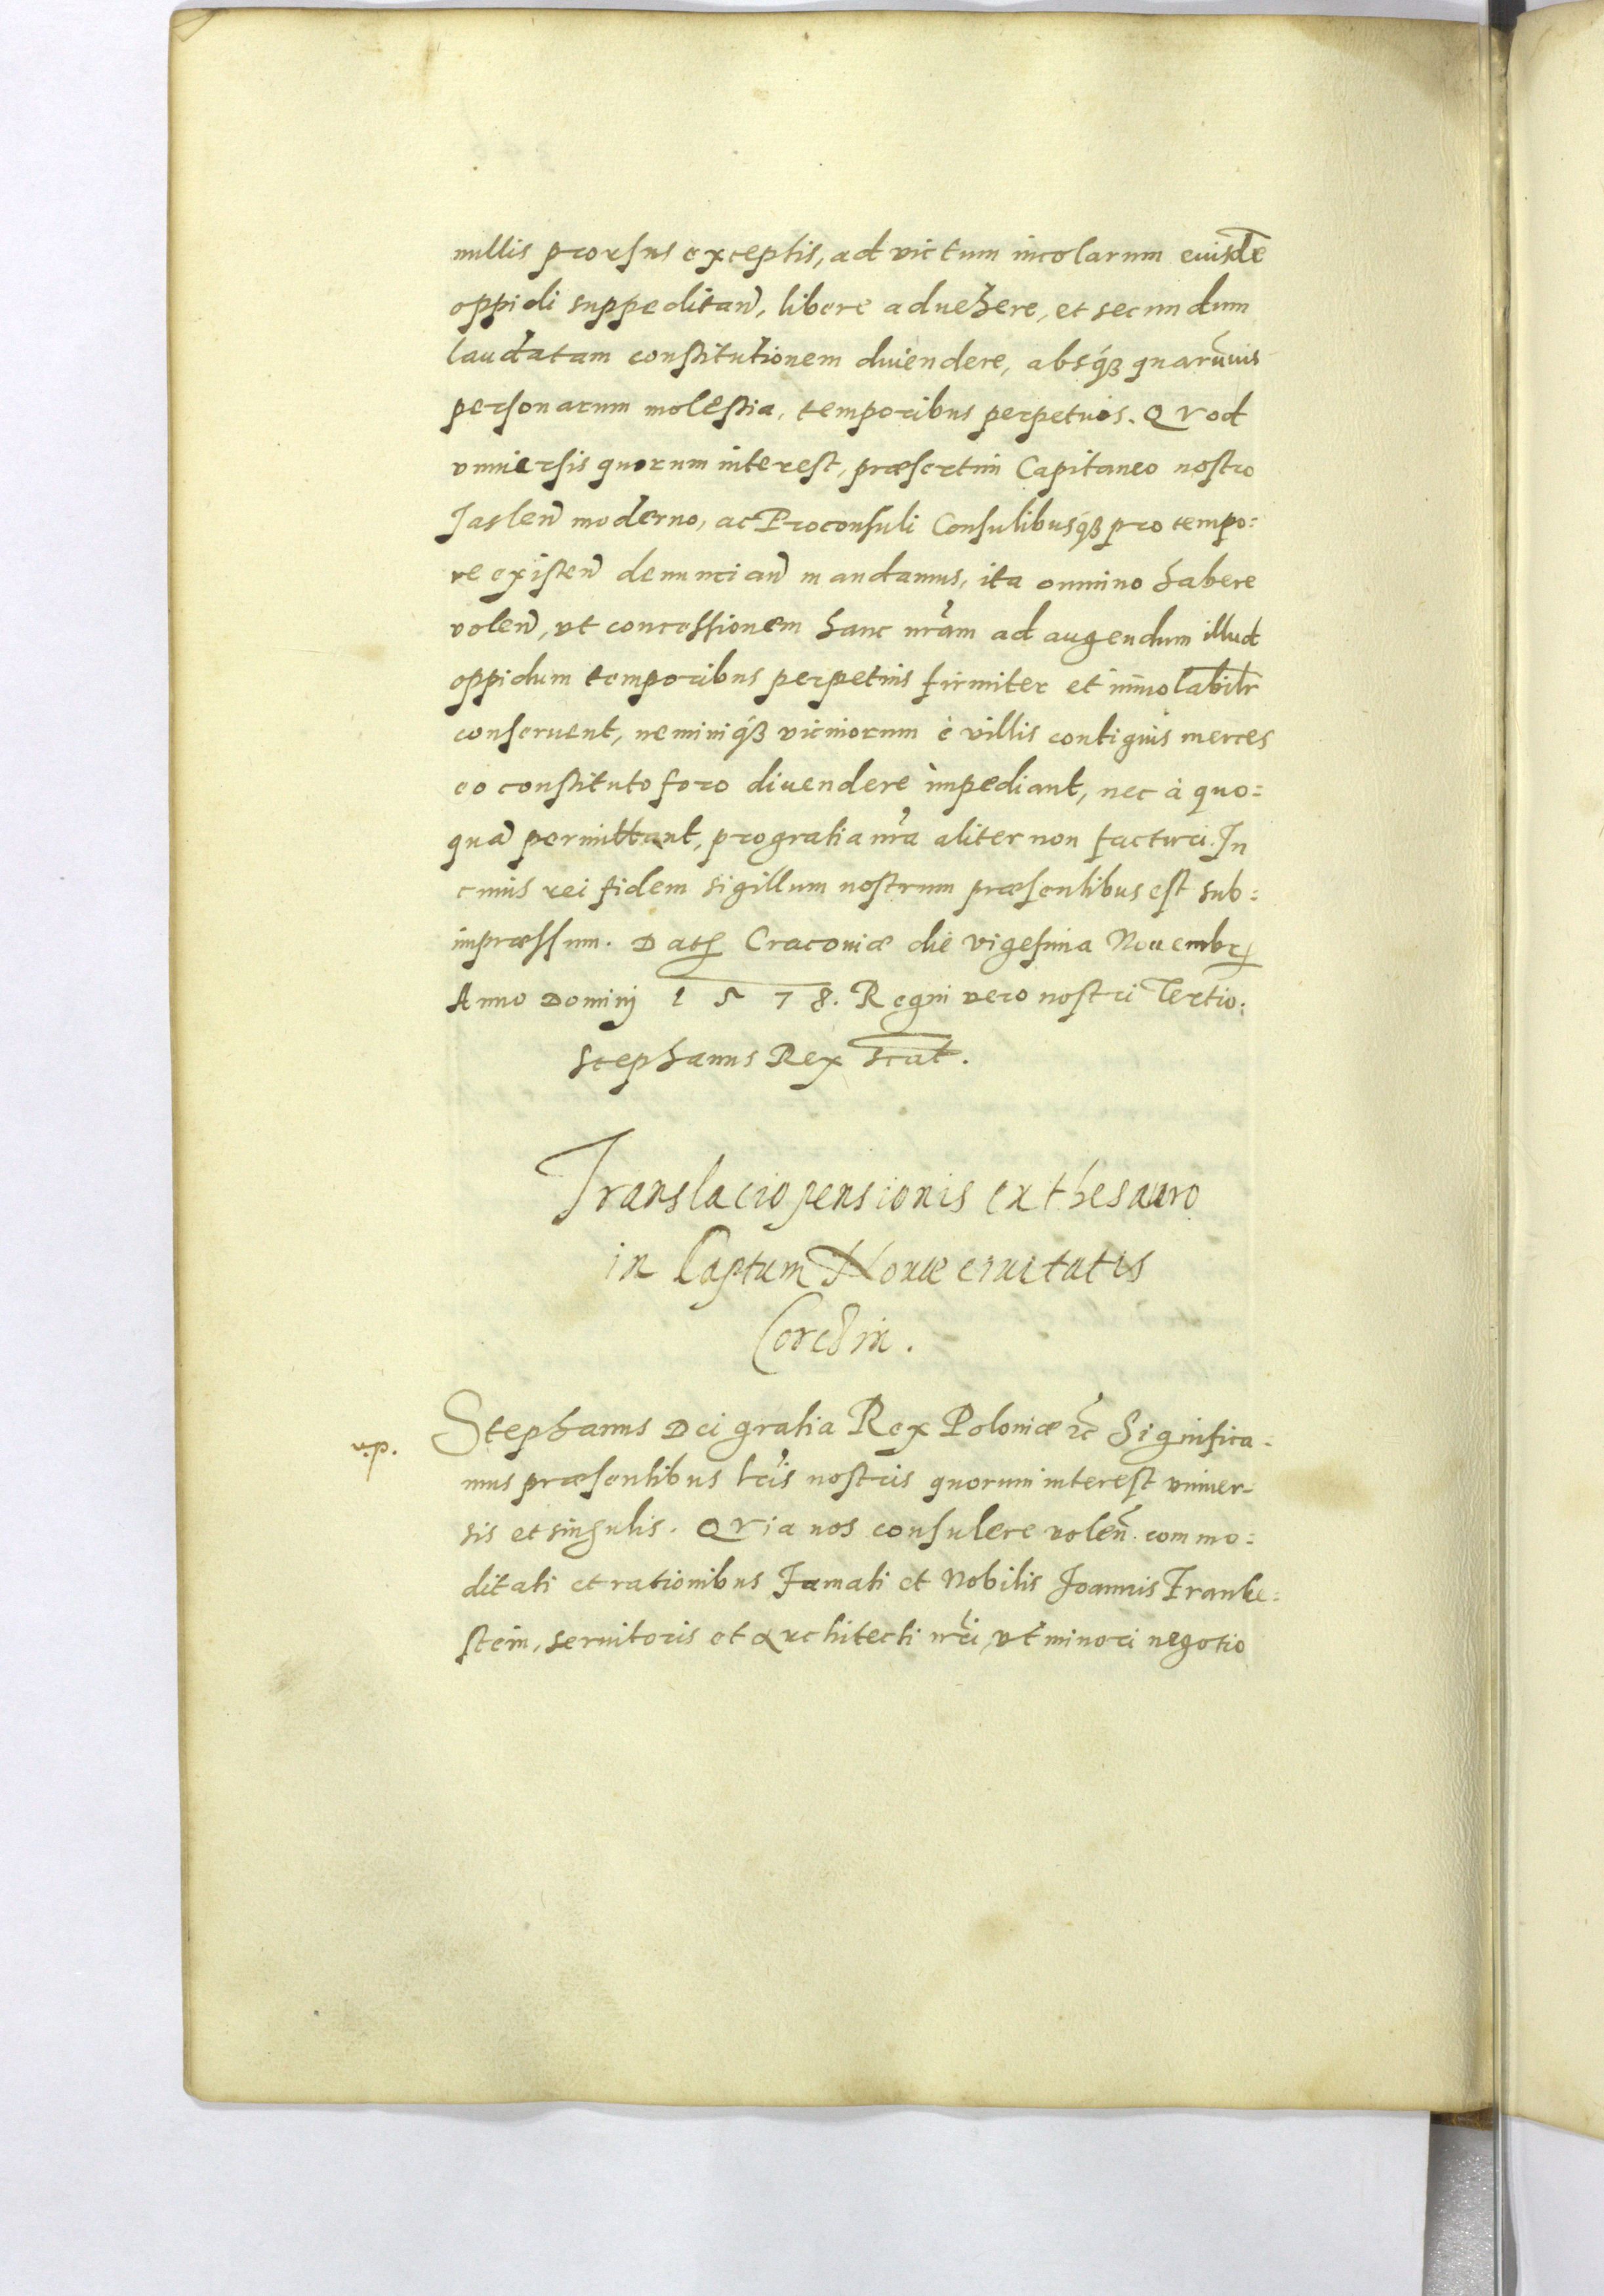 nullis prorsus exceptis, ad victum incolarum eiusdē
oppidi suppeditañ, libere aduehere, et secundum
laudatam constitutionem diuendere, absq́ꝫ quarũuis
personarum molestia, temporibus perpetuis. QVod
vniuersis quorum interest, præsertim Capitaneo nostro
Jasleñ moderno, ac Proconsuli Consulibusq́ꝫ pro tempo:
re existeñ denunciañ mandamus, ita omnino habere
voleñ, vt concessionem hanc nr̃am ad augendum illud
oppidum temporibus perpetuis firmiter et inuiolabilr̃
conseruent, neminiq́ꝫ vicinorum è villis contiguis merces
eo constituto foro diuendere impediant, nec à quo:
quã permittant, pro gratia nr̃a aliter non facturi. In
cuius rei fidem sigillum nostrum præsentibus est sub:
impræssum. Datꝭ Cracouiæ die vigesima Nouembrꝭ
Anno Dominj 1578. Regni vero nostri Tertio.
Stephanus Rex scat.
Translacio pensionis ex thesauro
in Captum Nouæ ciuitatis
Corcȣin.
v.p.
Stephanus Dei gratia Rex Poloniæ ꝛc̃ Significa-
mus præsentibus lr̃is nostris quorum interest vniuer-
sis et singulis. QVia nos consulere voleñ commo:
ditati et rationibus Famati et Nobilis Joannis Franke:
stein, seruitoris et Architecti nr̃i, vt minori negotio